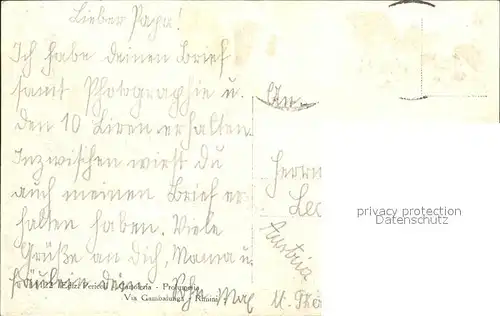 Lieber Papa!
Ich habe deinen Brief
samt Photographie u.
den 10 Liren erhalten.
Inzwischen wirst du
auch meinen Brief er
halten haben. Viele
Grüße an dich, Mama u
Fräulein dein Max
Profumeria
Via Gambalunga - Rimini
An
Herrn
Le
Austria
privacy protection
Datenschutz